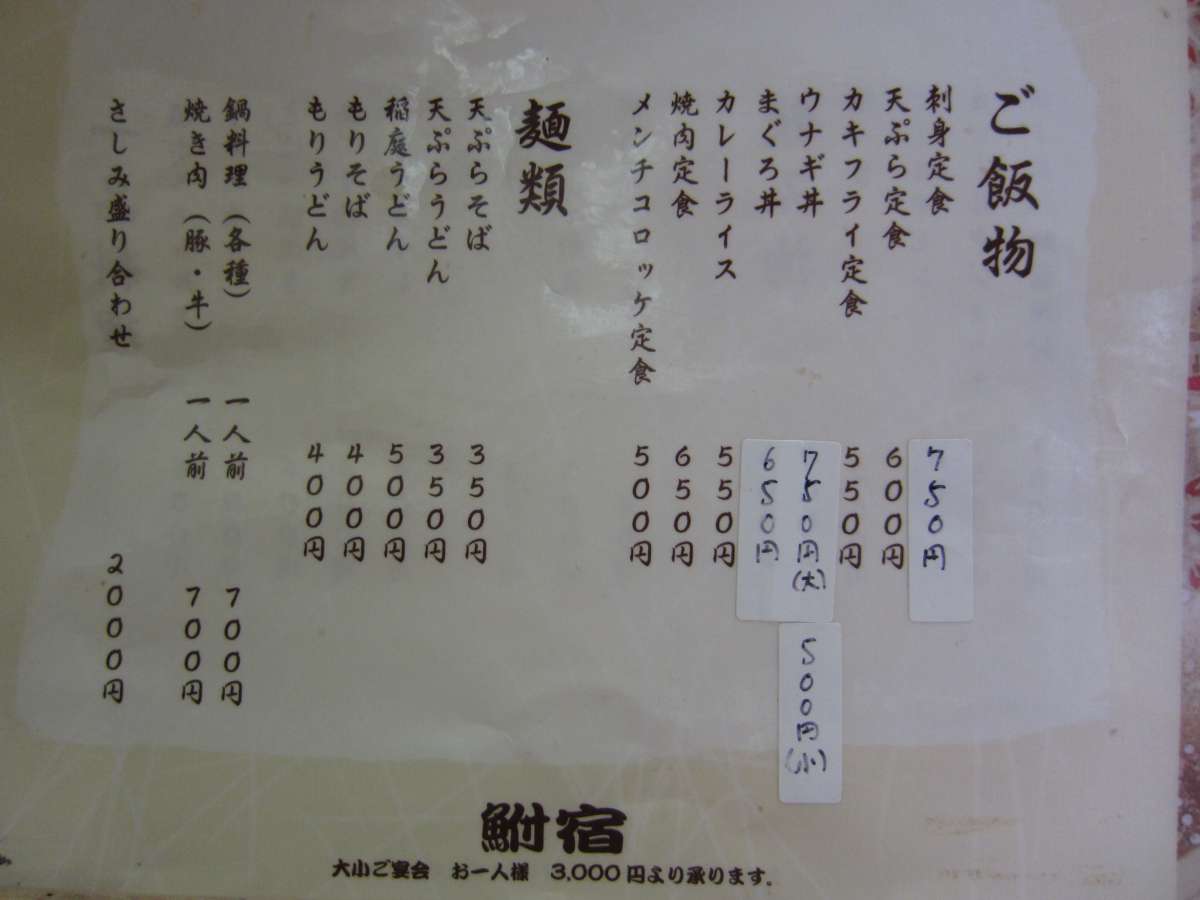 ご飯物
刺身定食 750円
天ぷら定食 600円
カキフライ定食 550円
ウナギ丼 750円(大) 500円(小)
まぐろ丼 650円
カレーライス 550円
焼肉定食 650円
メンチコロッケ定食 500円
麺類
天ぷらそば 350円
天ぷらうどん 350円
稲庭うどん 500円
もりそば 400円
もりうどん 400円
鍋料理(各種) 一人前 700円
焼き肉(豚・牛) 一人前 700円
さしみ盛り合わせ 2000円
鮒宿
大小ご宴会 お一人様 3,000円より承ります.